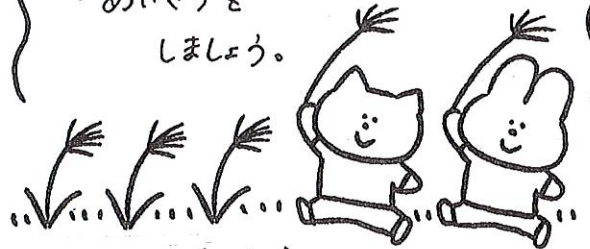 あいさつを
しましょう。